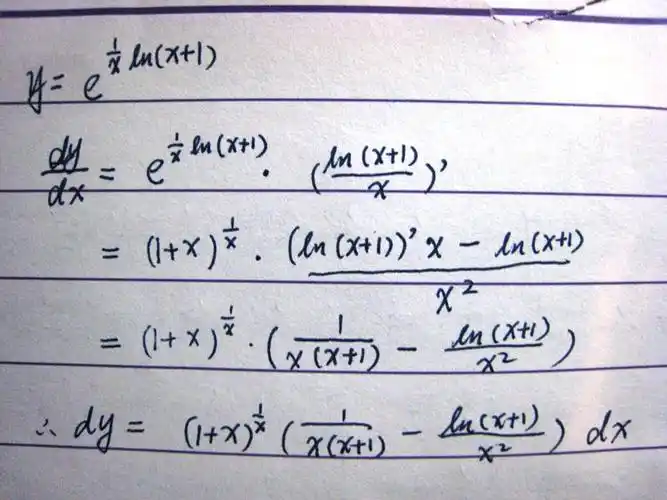 y = e^{\frac{1}{x} ln(x+1)}
\frac{dy}{dx} = e^{\frac{1}{x} ln(x+1)} · (\frac{ln(x+1)}{x})'
= (1+x)^{\frac{1}{x}} · \frac{(ln(x+1))' x - ln(x+1)}{x^2}
= (1+x)^{\frac{1}{x}} · (\frac{1}{x(x+1)} - \frac{ln(x+1)}{x^2})
∴ dy = (1+x)^{\frac{1}{x}} (\frac{1}{x(x+1)} - \frac{ln(x+1)}{x^2}) dx